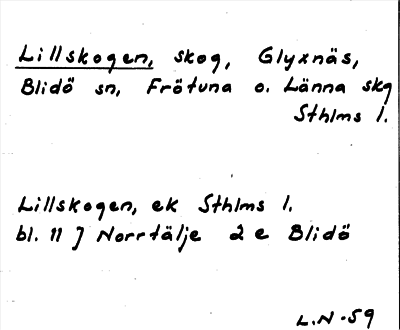 Lillskogen, skog, Glyxnäs,
Blidö sn, Frötuna o. Länna skg
Sthlms l.
Lillskogen, ek Sthlms l.
bl. 11 J Norrtälje 2 e Blidö
L.N-59